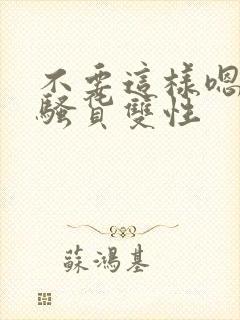 不要這樣嗯
騷貨雙性
蘇鴻基